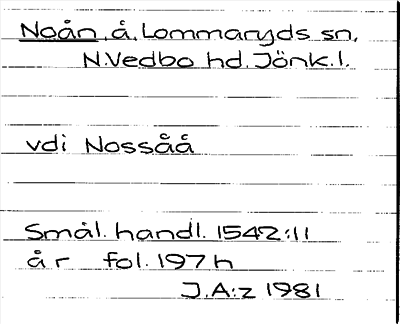 Noån, å, Lommaryds sn,
N.Vedbo hd. Jönk.l.
vdi Nossåå
Smål. handl. 1542:11
år fol. 197h
J.A:z 1981